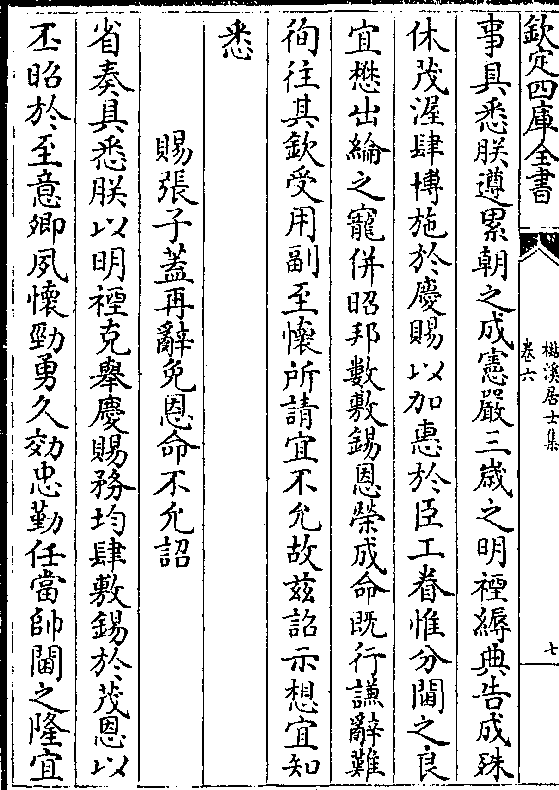 欽定四庫全書
樾溪居士集
卷六
七
事具悉朕遵累朝之成憲嚴三歲之明禋縟典告成殊
休茂渥肆博施於慶賜以加惠於臣工眷惟分閫之良
宜懋出綸之寵併昭邦數敷錫恩榮成命既行謙辭難
徇往其欽受用副至懷所請宜不允故兹詔示想宜知
悉
賜張子蓋再辭免恩命不允詔
省奏具悉朕以明禋克舉慶賜務均肆敷錫於茂恩以
丕昭於至意卿夙懷勁勇久効忠勤任當帥閫之隆宜